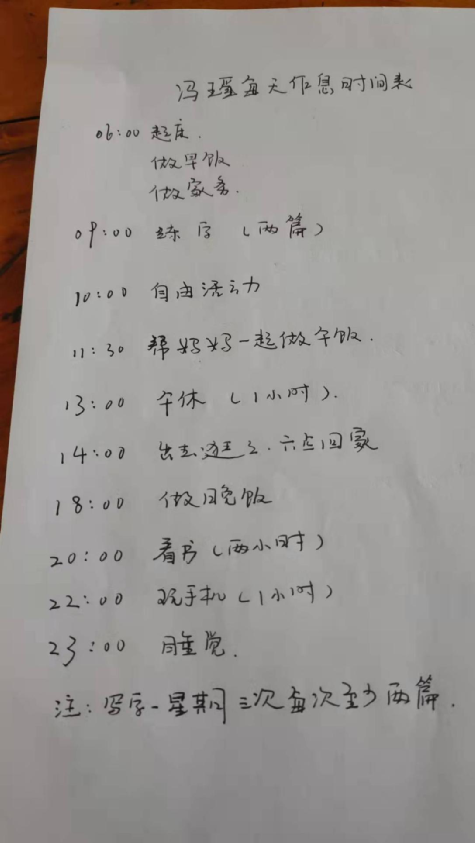 冯瑶每天作息时间表
06:00 起床.
做早饭
做家务.
09:00 练字(两篇)
10:00 自由活动
11:30 帮妈妈一起做午饭.
13:00 午休(1小时).
14:00 出去逛之.六点回家
18:00 做晚饭
20:00 看书(两小时)
22:00 玩手机(1小时)
23:00 睡觉.
注:写字一星期三次每次至少两篇.